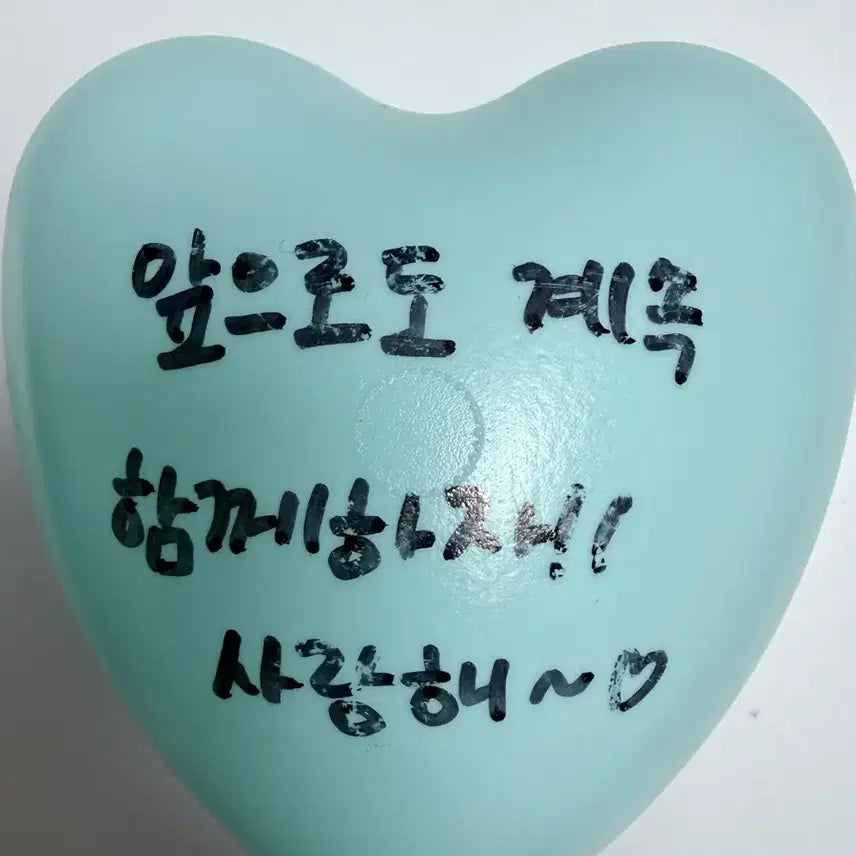 앞으로도 계속
함께하자!!
사랑해~♡